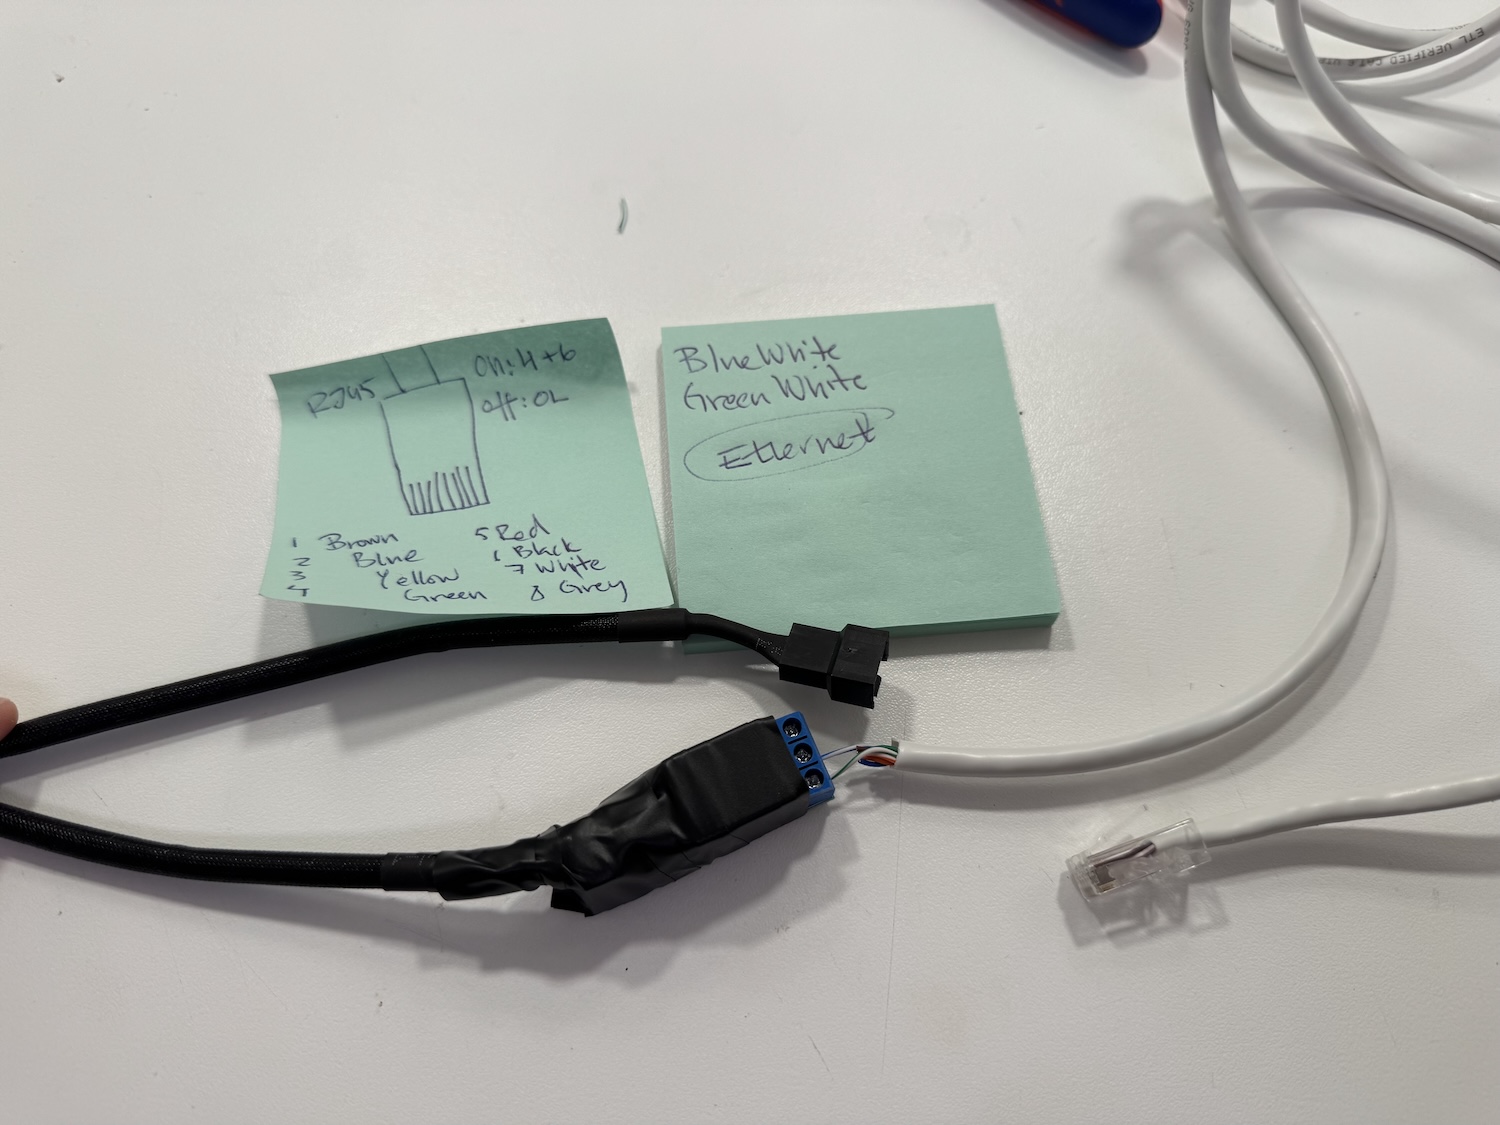 RJ45
On: 4+6
off: OL
1 Brown
2 Blue
3 Yellow
4 Green
5 Red
6 Black
7 White
8 Grey
BlueWhite
Green White
Ethernet
ETL VERIFIED CAT6 UTP